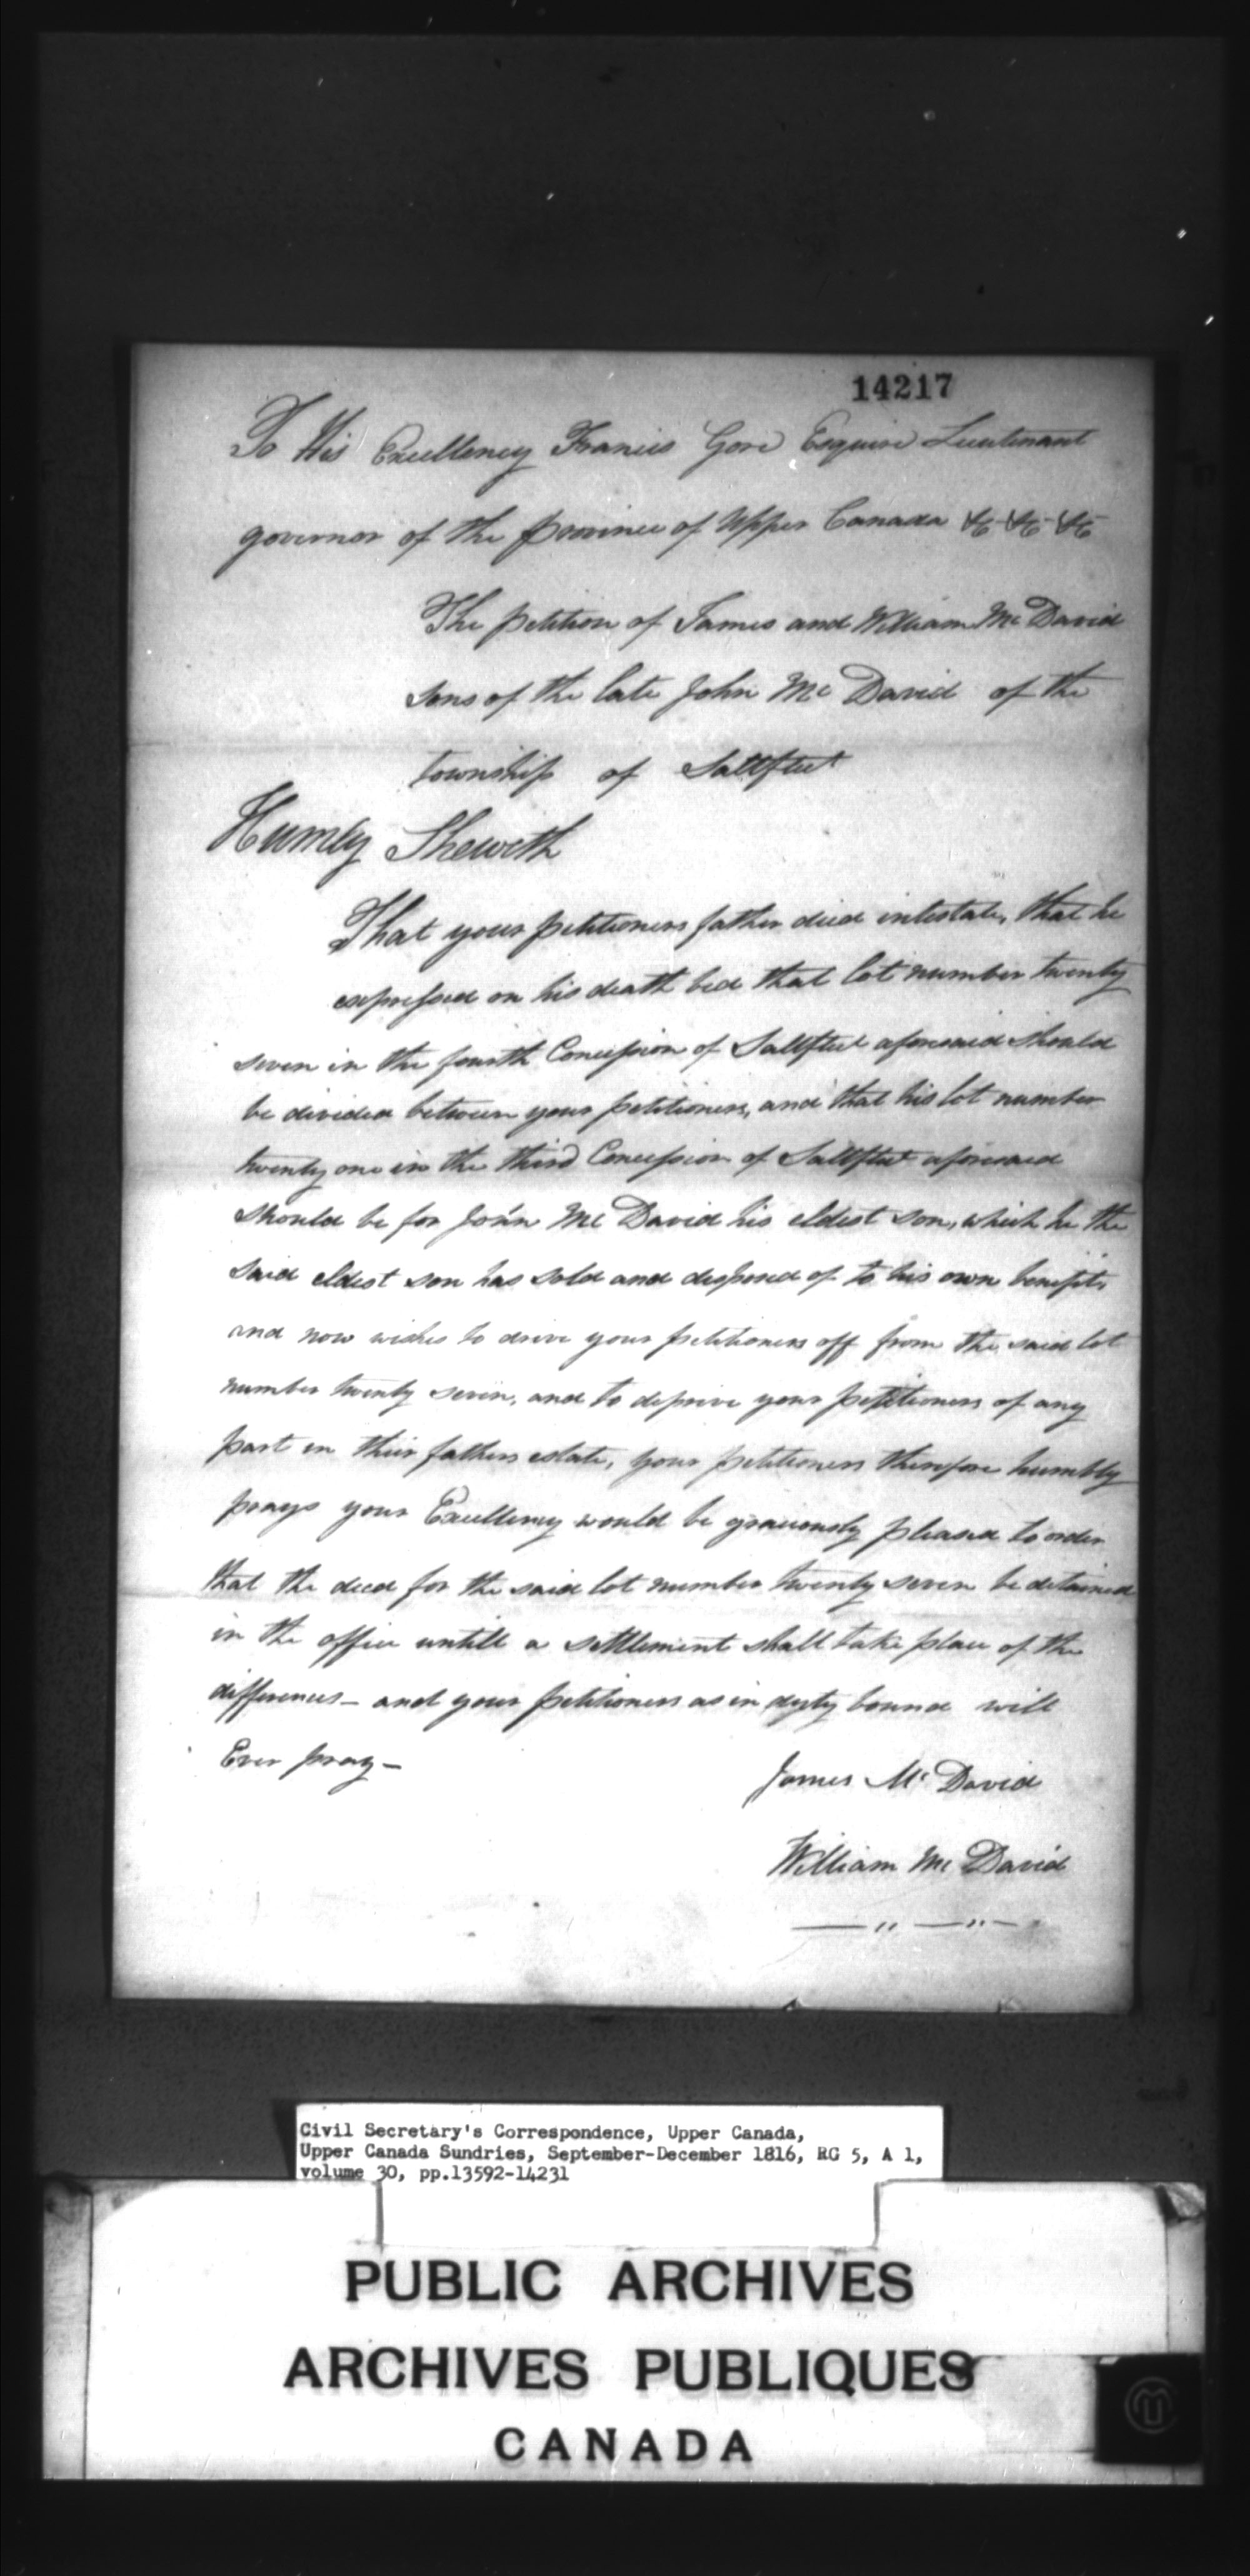 14217
To His Excellency Francis Gore Esquire Lieutenant
governor of the province of Upper Canada &c &c &c
The petition of James and William Mc David
sons of the late John Mc David of the
township of Saltfleet
Humly Sheweth
That your petitioners father died intestate, that he
expressed on his death bed that lot number twenty
seven in the fourth Concession of Saltfleet aforesaid should
be divided between your petitioners, and that his lot number
twenty one in the third Concession of Saltfleet aforesaid
should be for John Mc David his eldest son, which he the
said eldest son has sold and disposed of to his own benefit,
and now wishes to drive your petitioners off from the said lot
number twenty seven, and to deprive your petitioners of any
part in their fathers estate, your petitioners therefore humbly
prays your Excellency would be graciously pleased to order
that the deed for the said lot number twenty seven be detained
in the office untill a settlement shall take place of the
differences - and your petitioners as in duty bound will
Ever pray -
James Mc David
William Mc David
Civil Secretary's Correspondence, Upper Canada,
Upper Canada Sundries, September-December 1816, RG 5, A 1,
volume 30, pp.13592-14231
PUBLIC ARCHIVES
ARCHIVES PUBLIQUES
CANADA